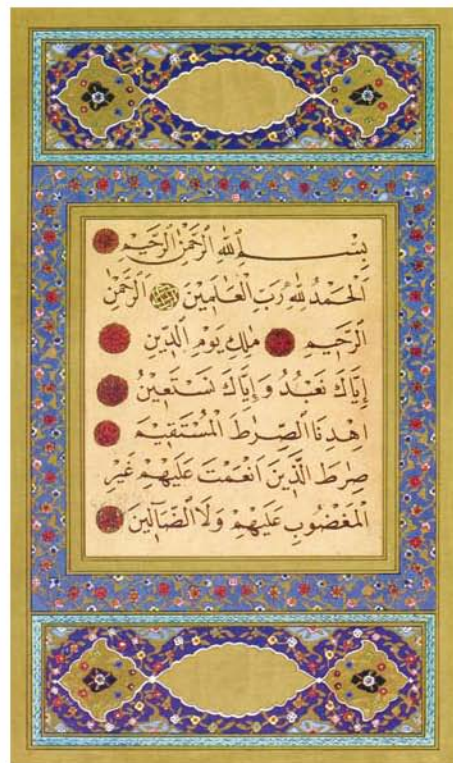 بِسْمِ اللّٰهِ الرَّحْمٰنِ الرَّحِيْمِ
اَلْحَمْدُ لِلّٰهِ رَبِّ الْعَالَمِيْنَ اَلرَّحْمٰنِ
الرَّحِيْمِ مٰلِكِ يَوْمِ الدِّيْنِ
اِيَّاكَ نَعْبُدُ وَاِيَّاكَ نَسْتَعِيْنُ
اِهْدِنَا الصِّرٰطَ الْمُسْتَقِيْمَ
صِرٰطَ الَّذِيْنَ اَنْعَمْتَ عَلَيْهِمْ غَيْرِ
الْمَغْضُوْبِ عَلَيْهِمْ وَلَا الضَّآلِّيْنَ